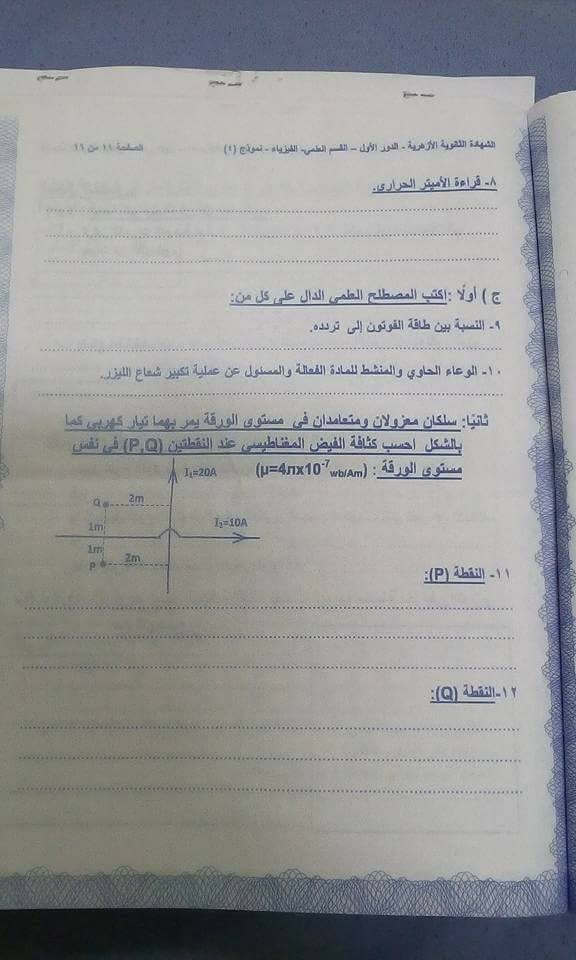 الشهادة الثانوية الأزهرية - الدور الأول – القسم العلمي- الفيزياء - نموذج (١) الصفحة ١١ من ١٦
٨- قراءة الأميتر الحراري.
ج ) أولًا :اكتب المصطلح العلمي الدال على كل من:
٩- النسبة بين طاقة الفوتون إلى تردده.
١٠- الوعاء الحاوي والمنشط للمادة الفعالة والمسئول عن عملية تكبير شعاع الليزر.
ثانيًا: سلكان معزولان ومتعامدان في مستوى الورقة يمر بهما تيار كهربي كما
بالشكل احسب كثافة الفيض المغناطيسي عند النقطتين (P,Q) في نفس
مستوى الورقة : (µ=4πx10-7 wb/Am)
I1=20A
Q 2m
1m
I2=10A
1m
P 2m
١١- النقطة (P):
١٢-النقطة (Q):